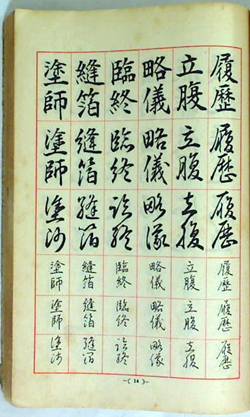 履歷履歷履歷履歷履歷履歷
立腹立腹立腹立腹立腹立腹
略儀略儀略儀略儀略儀略儀
臨終臨終臨終臨終臨終臨終
縫箔縫箔縫箔縫箔縫箔縫箔
塗師塗師塗師塗師塗師塗師